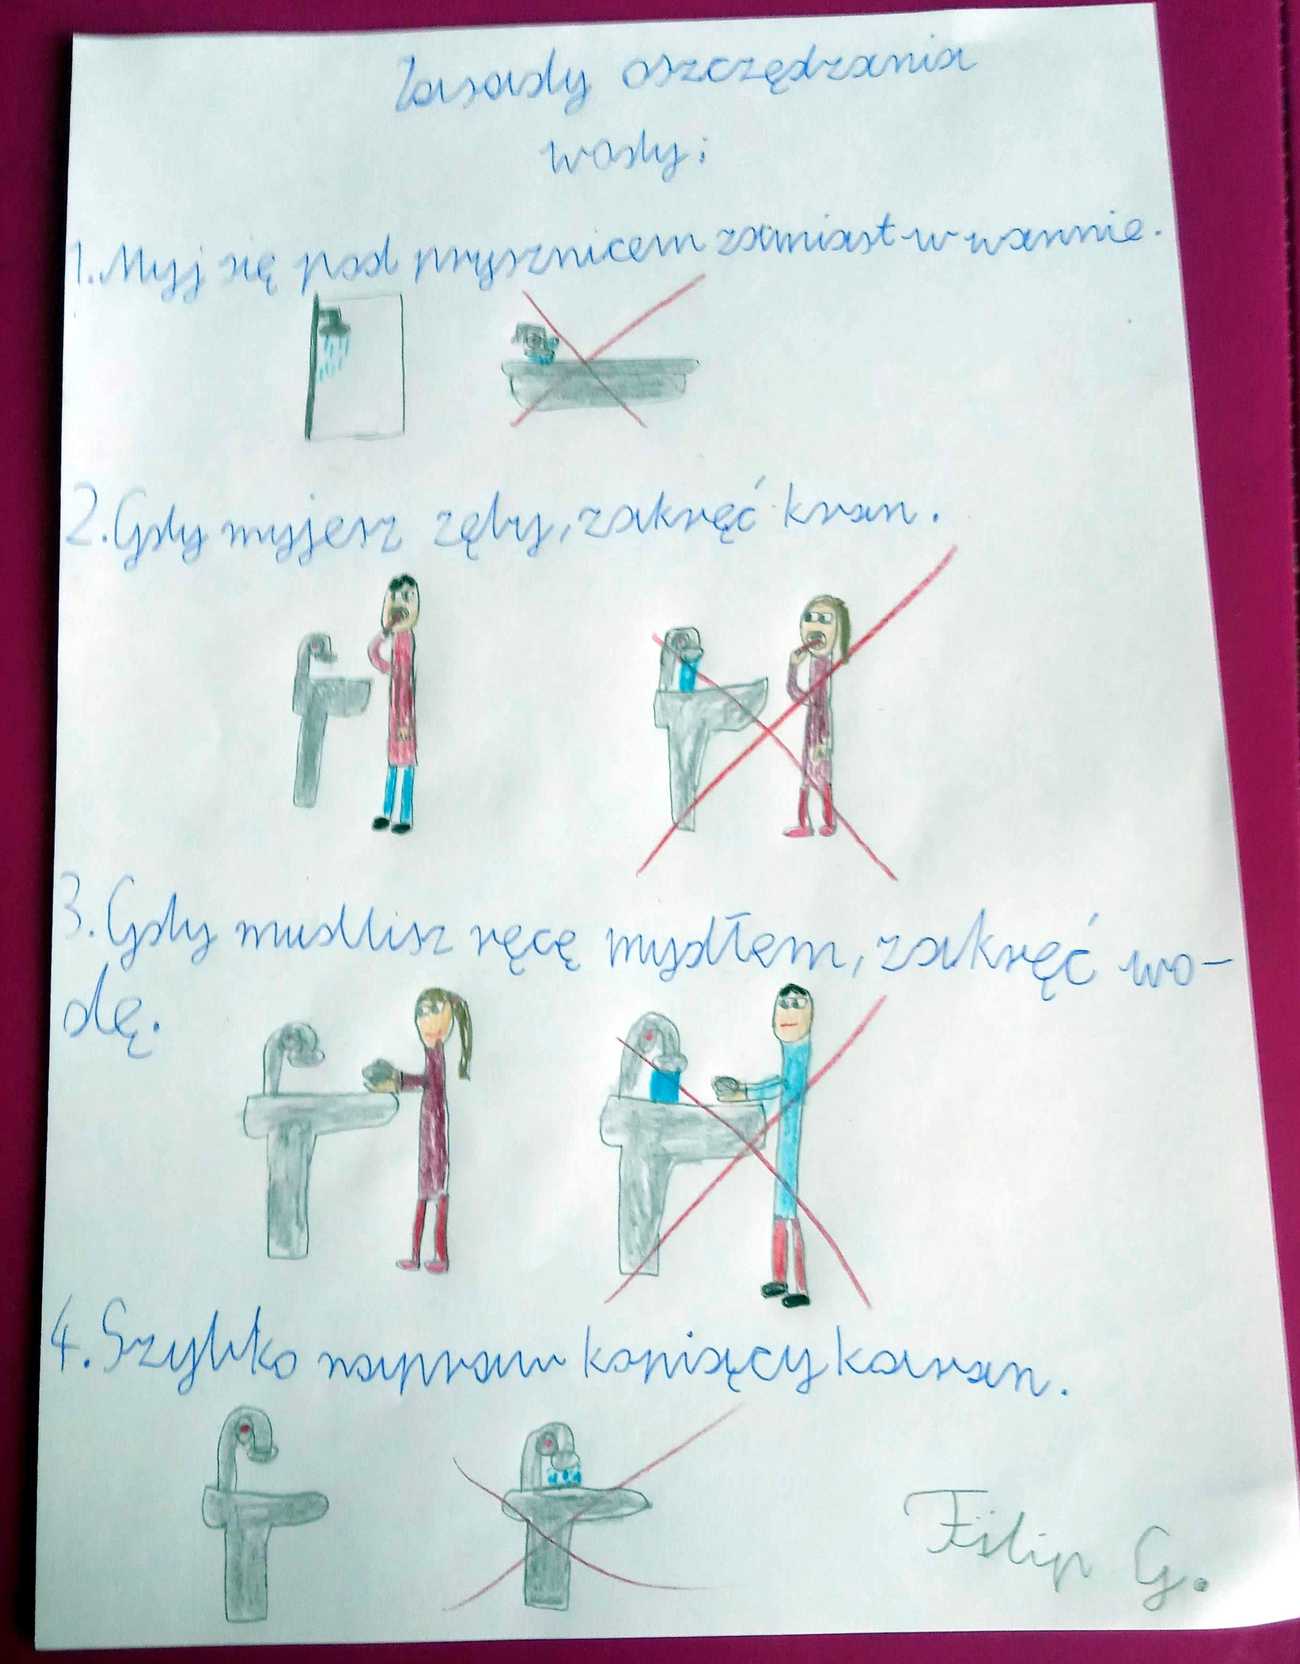 Zasady oszczędzania
wody:
1. Myj się pod prysznicem zamiast w wannie.
2. Gdy myjesz zęby, zakręć kran.
3. Gdy mudlisz ręcę mydłem, zakręć wo-
dę.
4. Szybko napraw kapiący karan.
Filip G.